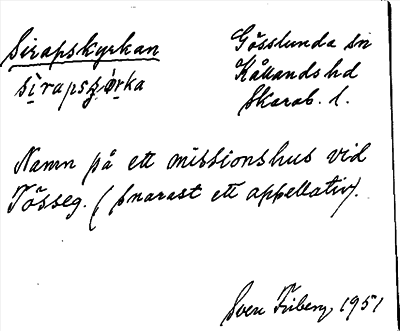 Sirapskyrkan
sìrapsȼórka
Gösslunda sn
Kållands hd
Skarab. l.
Namn på ett missionshus vid
Tösseg. (snarast ett appellativ).
Sven Friberg, 1951